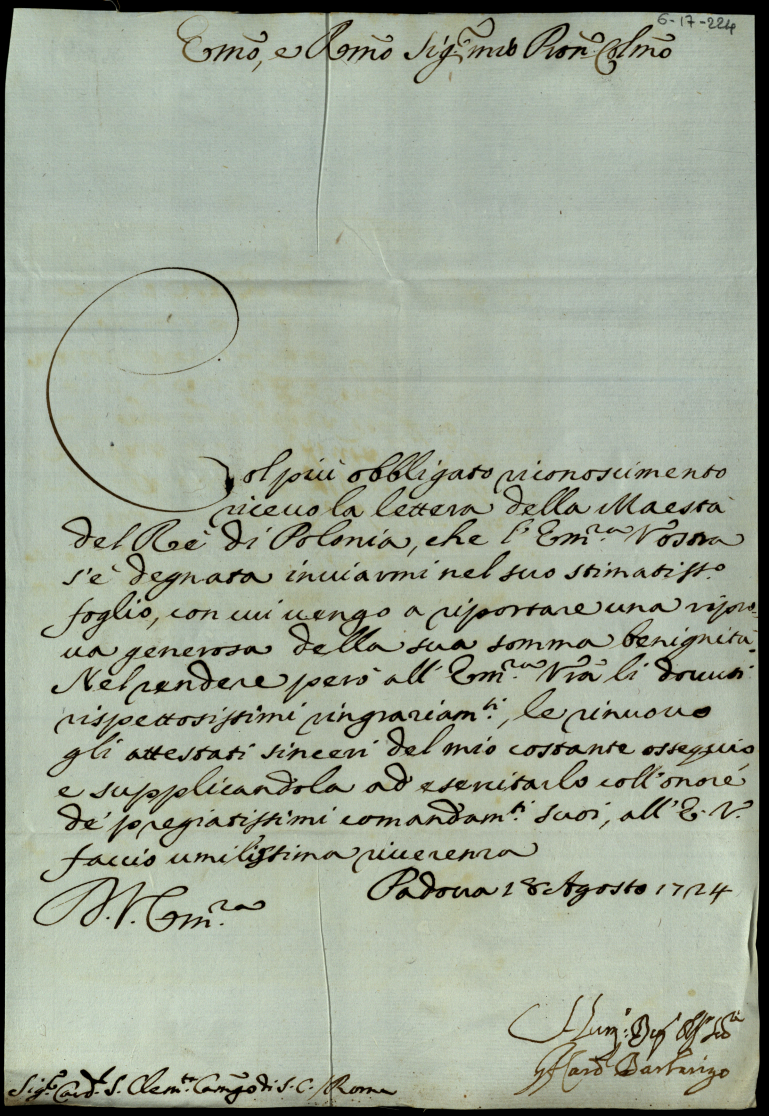 6-17-224
Emo, e Rmo Sig.r mio Pron Colmo
Col più obbligato riconoscimento
ricevo la lettera della Maestà
del Rè di Polonia, che l'Em.ra Vostra
s'è degnata inviarmi nel suo stimatiss.o
foglio, con cui vengo a riportare una ripro-
va generosa della sua somma benignità.
Nel rendere però all'Em.ra Vra li dovuti
rispettosissimi ringraziam.ti, le rinuovo
gli attestati sinceri del mio costante ossequio
e supplicandola ad esercitarlo coll'onore
de' pregiatissimi comandam.ti suoi, all'E. V.
faccio umilissima riverenza
Padova 18 Agosto 1724
D. V. Em.ra
Card Barbarigo
Sig.r Card. S. Clem.te Camgo di S. C. / Roma